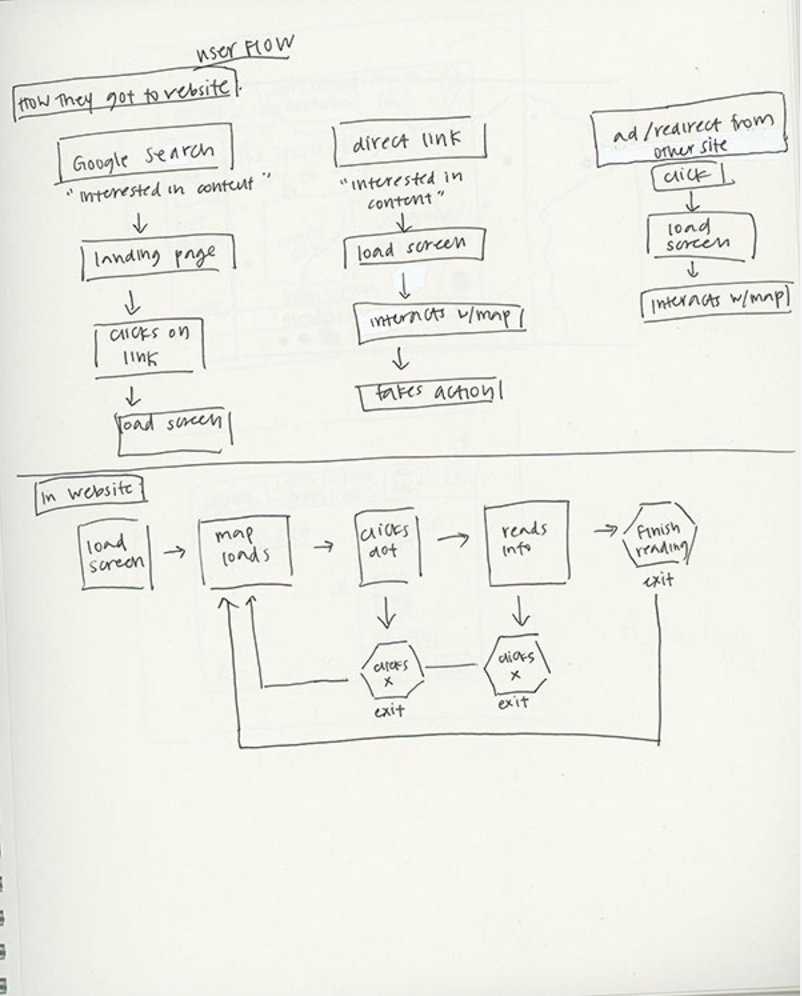 user Flow
How they got to website
Google search
"interested in content"
landing page
clicks on
link
load screen
direct link
"interested in
content"
load screen
interacts w/map
takes action
ad/redirect from
other site
click
load
screen
interacts w/map
In website
load
screen
map
loads
clicks
dot
reads
info
Finish
reading
exit
clicks
x
exit
clicks
x
exit